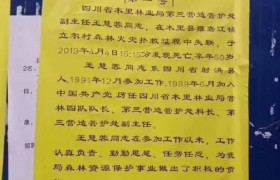 四川省木里林业局第三营造管护处
副主任王慧蓉同志,在木里县雅砻江镇
立尔村森林火灾扑救过程中失联,于
2019年4月4日15:15分发现死亡,享年50岁
王慧蓉同志系四川省射洪县
人,1991年12月参加工作,1989年6月加入
中国共产党,历任四川省木里林业局普
林四队队长,第三营造管护处科长、第
三营造管护处副主任,
王慧蓉同志在参加工作以来,工
作认真负责、勤勤恳恳、任劳任怨,为我
局森林资源保护事业做出了积极的贡